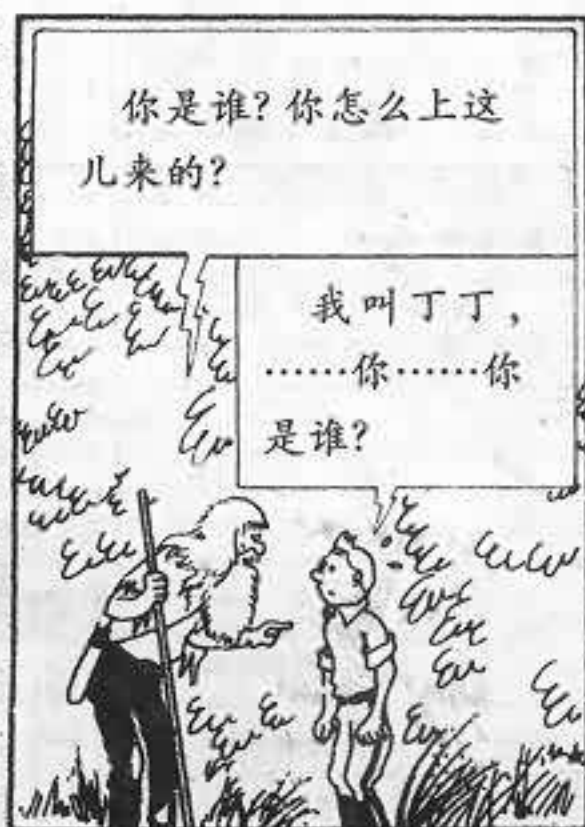 你是谁?你怎么上这
儿来的?
我叫丁丁,
……你……你
是谁?